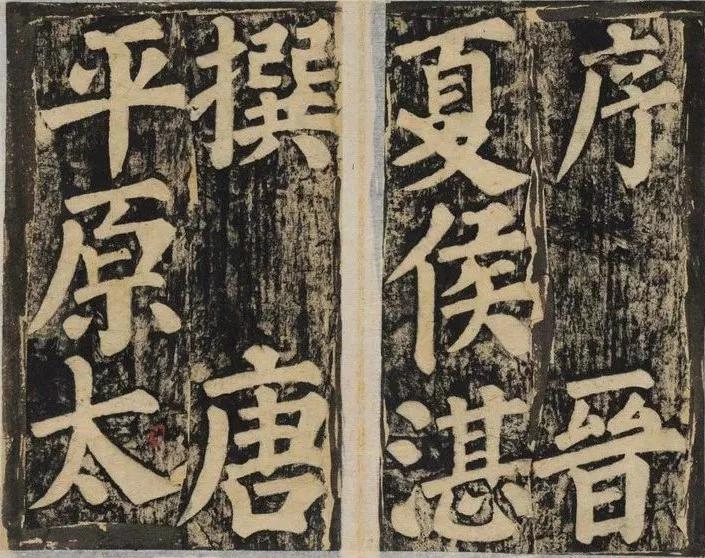 序晉
夏侯湛
撰唐
平原太